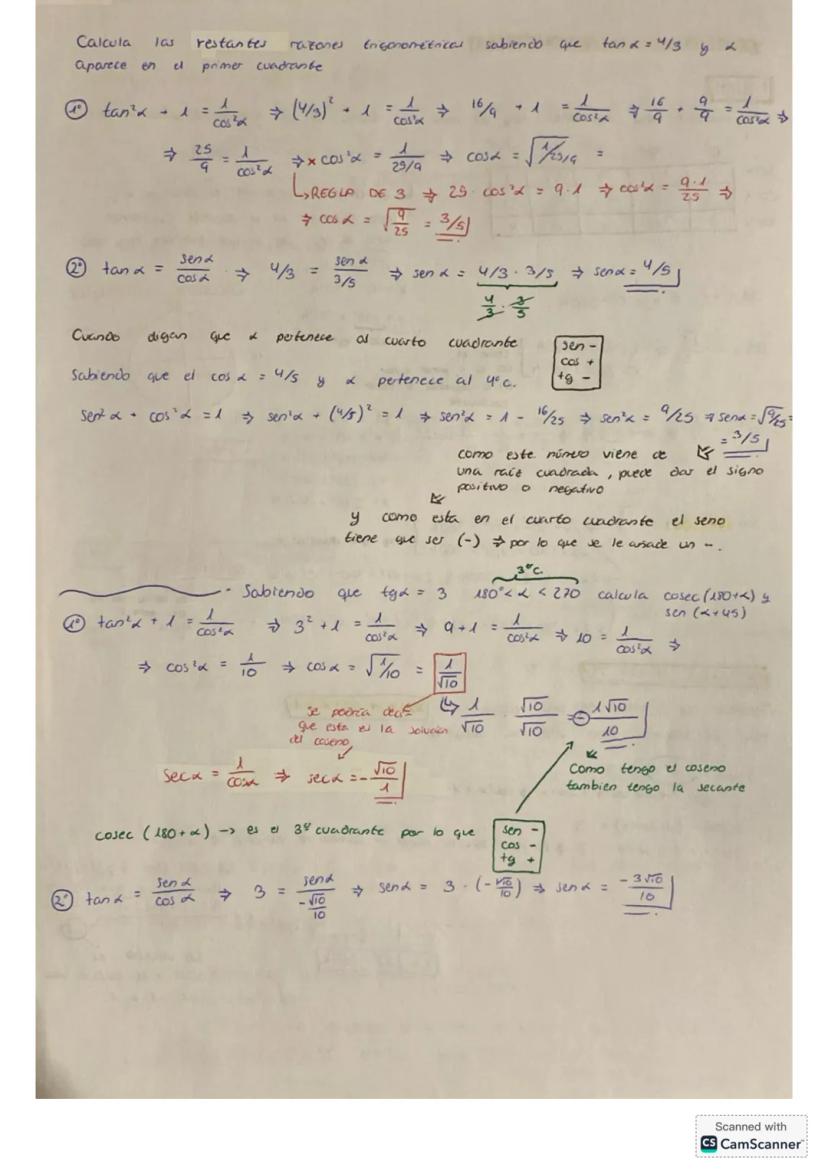 Calcula las restantes razones trigonométricas sabiendo que tan α = 4/3 y α
aparece en el primer cuadrante
1º tan²α + 1 = 1/cos²α ⇒ (4/3)² + 1 = 1/cos²α ⇒ 16/9 + 1 = 1/cos²α ⇒ 16/9 + 9/9 = 1/cos²α ⇒
⇒ 25/9 = 1/cos²α ⇒ x cos²α = 1/25/9 ⇒ cosα = √1/25/9 =
↳ REGLA DE 3 ⇒ 25 · cos²α = 9·1 ⇒ cos²α = 9·1/25 ⇒
⇒ cos α = √9/25 = 3/5
2º tan α = sen α/cos α ⇒ 4/3 = sen α/3/5 ⇒ sen α = 4/3 · 3/5 ⇒ sen α = 4/5
4/3 · 3/5
Cuando digan que α pertenece al cuarto cuadrante
sen -
cos +
tg -
Sabiendo que el cos α = 4/5 y α pertenece al 4º c.
sen²α + cos²α = 1 ⇒ sen²α + (4/5)² = 1 ⇒ sen²α = 1 - 16/25 ⇒ sen²α = 9/25 ⇒ senα = √9/25 =
= 3/5
como este número viene de
una raíz cuadrada, puede dar el signo
positivo o negativo
y como esta en el cuarto cuadrante el seno
tiene que ser (-) ⇒ por lo que se le añade un -.
3ºc.
- Sabiendo que tgα = 3 180° < α < 270 calcula cosec (180+α) y
sen (α+45)
1º tan²α + 1 = 1/cos²α ⇒ 3² + 1 = 1/cos²α ⇒ 9 + 1 = 1/cos²α ⇒ 10 = 1/cos²α ⇒
⇒ cos²α = 1/10 ⇒ cos α = √1/10 = 1/√10
↳ 1/√10 · √10/√10 = - 1√10/10
se podría decir
que esta es la solución
del coseno
Secα = 1/cosα ⇒ secα = - √10/1
Como tengo el coseno
tambien tengo la secante
cosec (180 + α) -> es el 3º cuadrante por lo que
sen -
cos -
tg +
2º tan α = sen α/cos α ⇒ 3 = sen α/-√10/10 ⇒ sen α = 3 · (-√10/10) ⇒ sen α = -3√10/10
Scanned with
CS CamScanner